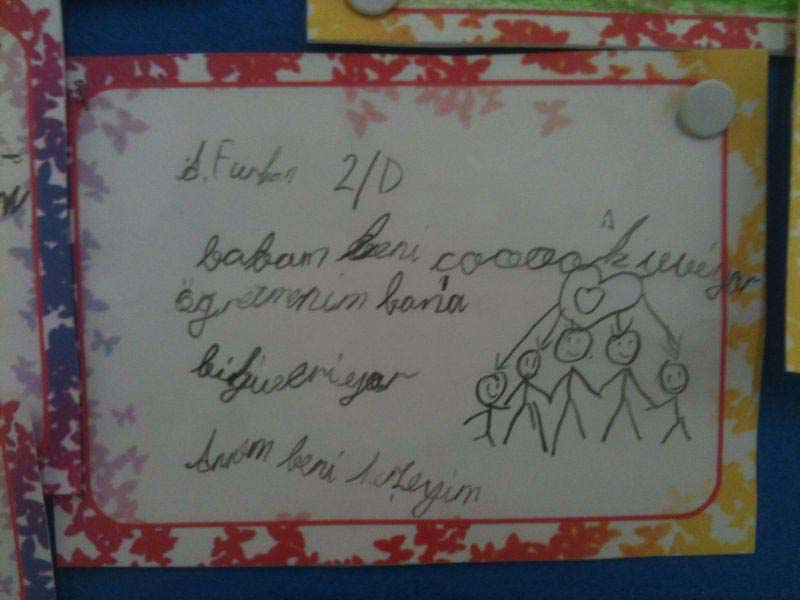 A. Furkan 2/D
babam beni çooooo k seviyor
öğretmenim bana
bilgi veriyor
Annem beni